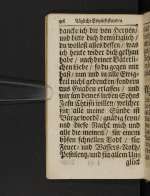 98 Tägliche Creutz-Stunden
dancke ich dir von Hertzen/
und bitte dich demütiglich/
du wollest alles dessen/ was
ich heute wider dich gethan
habe/ nach deiner Väterli-
chen Liebe/ so du gegen uns
hast/ nun und in alle Ewig-
keit nicht gedencken sondern
aus Gnaden erlassen/ und
mir um deines lieben Sohns
Jesu Christi willen/ welcher
für alle meine Sünde ist
Bürge worden/ gnädig seyn/
und diese Nacht mich und
alle die meinen/ für einem
bösen schnellen Tod/ für
Feuer- und Wassers-Noth/
Pestilentz/ und für allem Un-
glück